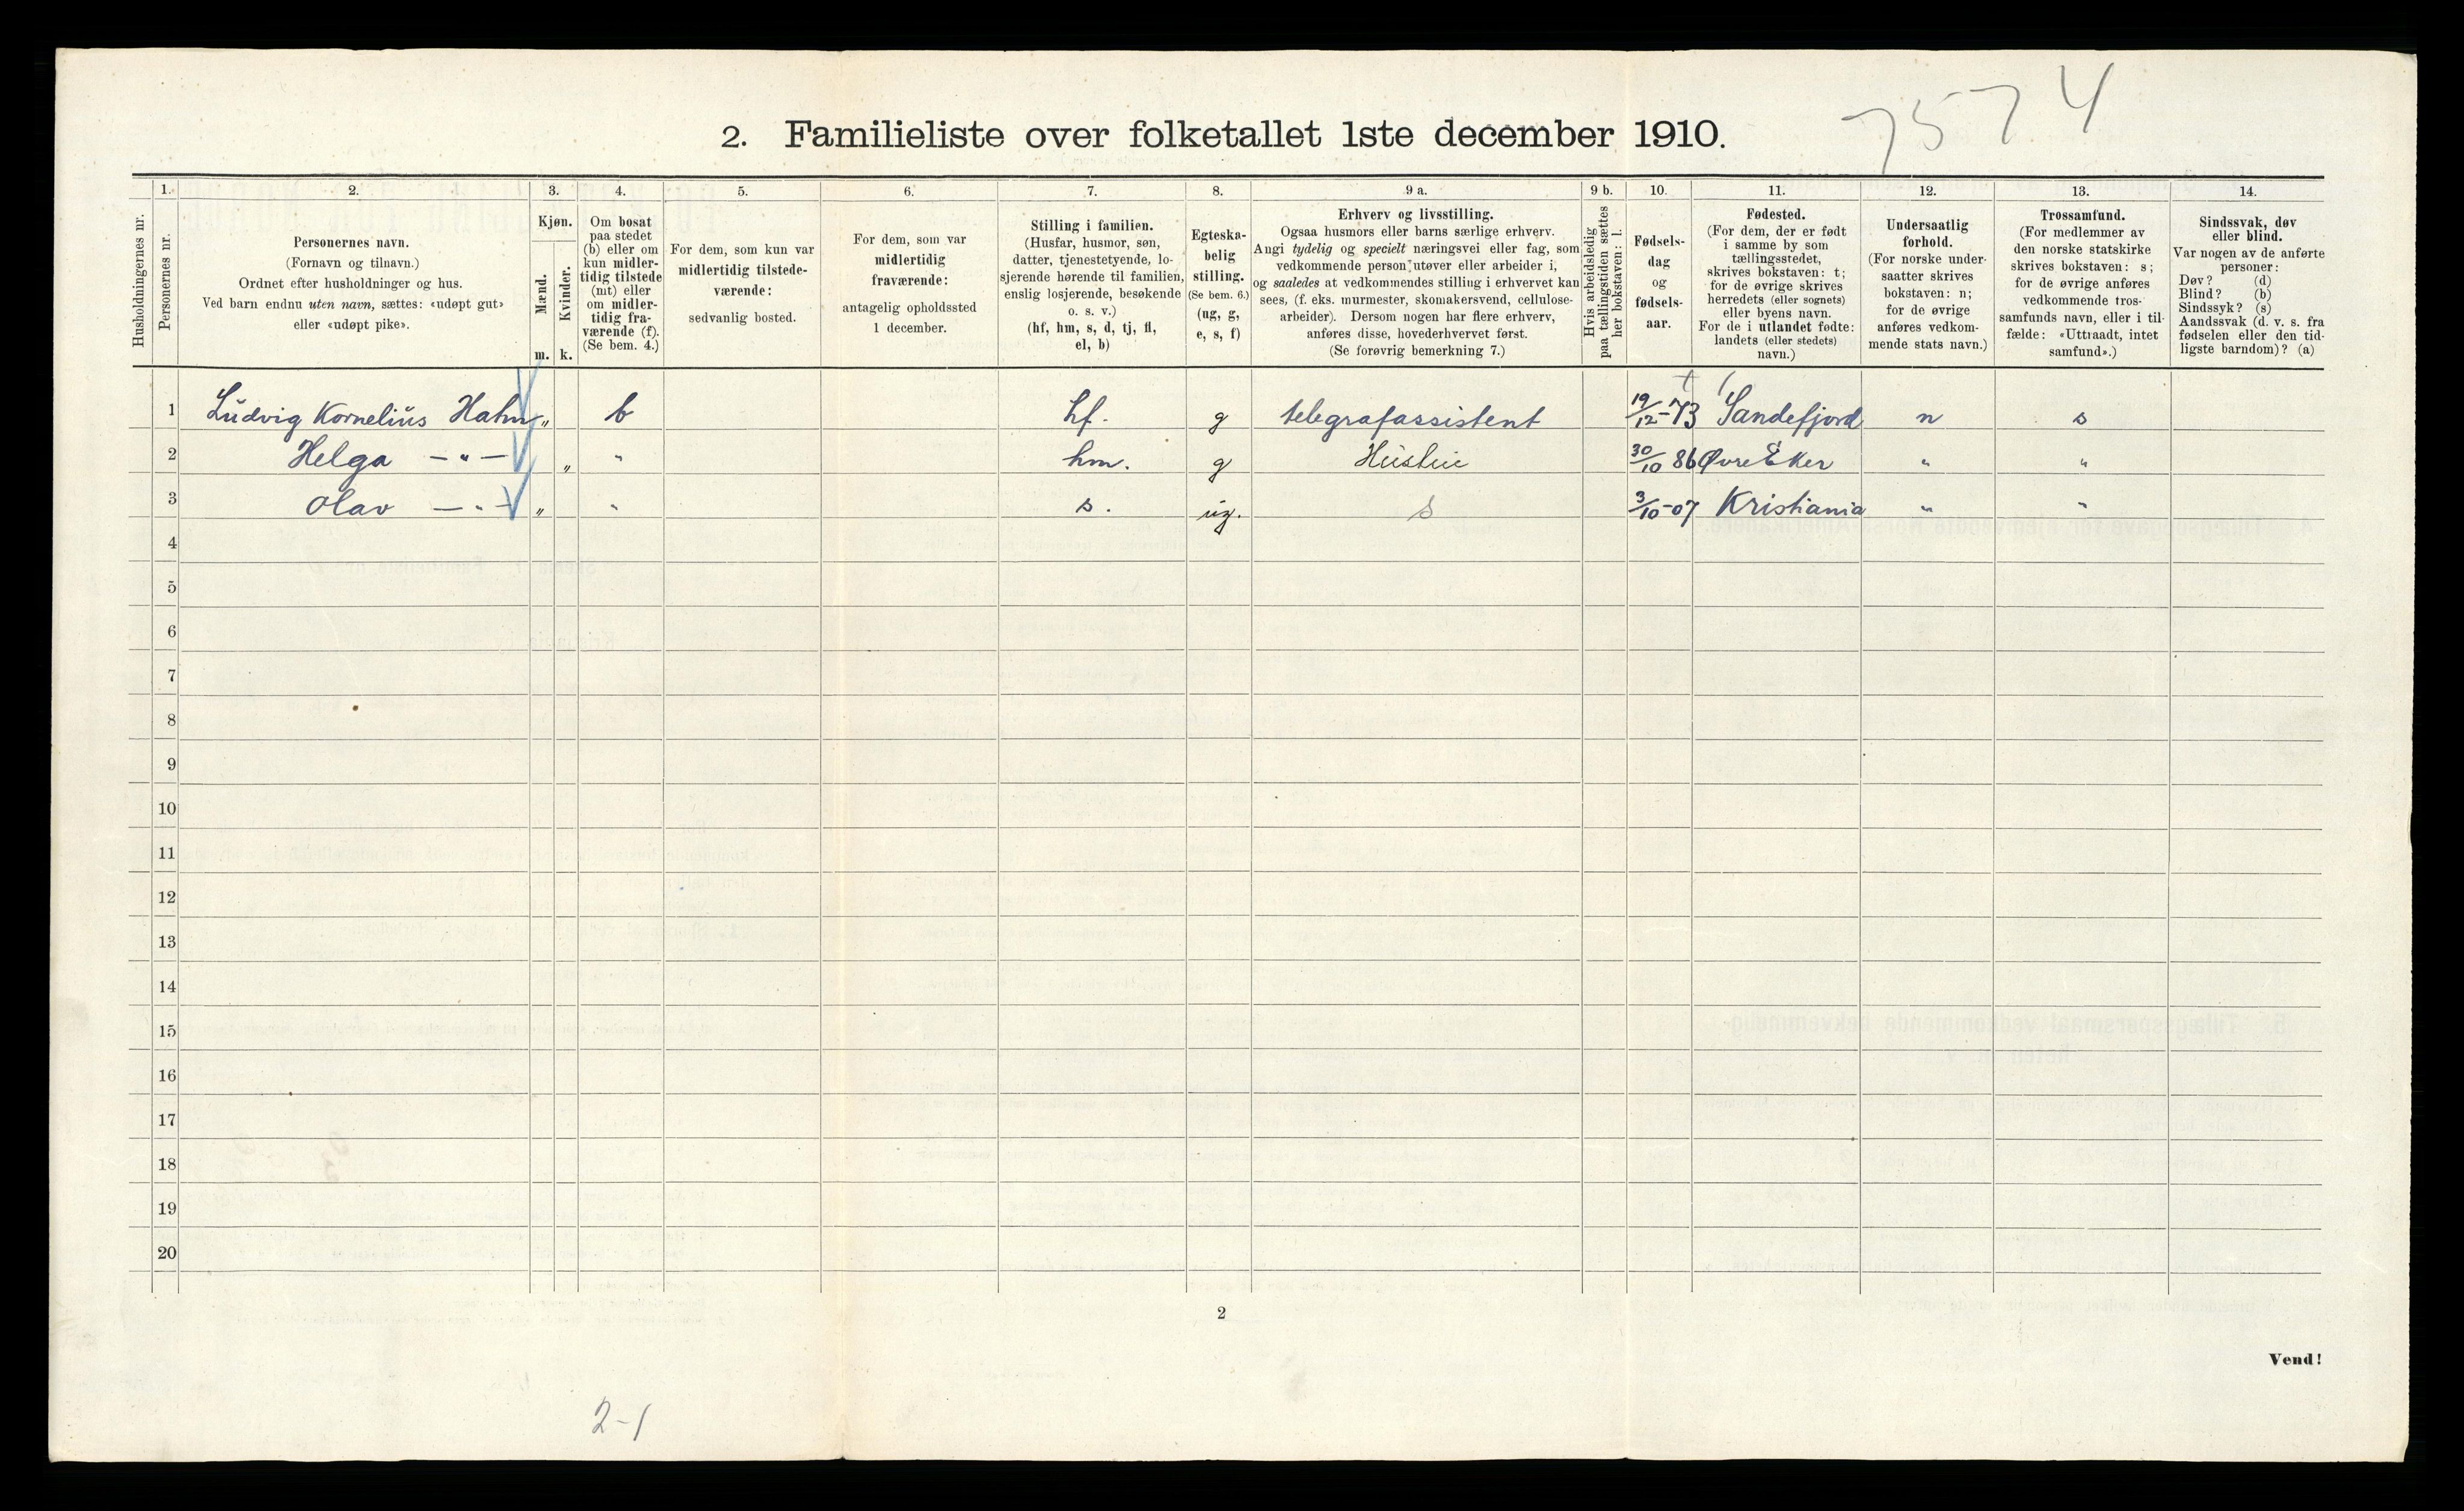 7574
2. Familieliste over folketallet 1ste december 1910.
1. 2. 3. 4. 5. 6. 7. 8. 9 a. 9 b. 10. 11. 12. 13. 14.
Husholdningernes nr.
Personernes nr.
Personernes navn.
(Fornavn og tilnavn.)
Ordnet efter husholdninger og hus.
Ved barn endnu uten navn, sættes: «udøpt gut»
eller «udøpt pike».
Kjøn.
Mænd.
Kvinder.
m. k.
Om bosat
paa stedet
(b) eller om
kun midler-
tidig tilstede
(mt) eller
om midler-
tidig fra-
værende (f).
(Se bem. 4.)
For dem, som kun var
midlertidig tilstede-
værende:
sedvanlig bosted.
For dem, som var
midlertidig
fraværende:
antagelig opholdssted
1 december.
Stilling i familien.
(Husfar, husmor, søn,
datter, tjenestetyende, lo-
sjerende hørende til familien,
enslig losjerende, besøkende
o. s. v.)
(hf, hm, s, d, tj, fl,
el, b)
Egteska-
belig
stilling.
(Se bem. 6.)
(ug, g,
e, s, f)
Erhverv og livsstilling.
Ogsaa husmors eller barns særlige erhverv.
Angi tydelig og specielt næringsvei eller fag, som
vedkommende person utøver eller arbeider i,
og saaledes at vedkommendes stilling i erhvervet kan
sees, (f. eks. murmester, skomakersvend, cellulose-
arbeider). Dersom nogen har flere erhverv,
anføres disse, hovederhvervet først.
(Se forøvrig bemerkning 7.)
Hvis arbeidsledig
paa tællingstiden sættes
her bokstaven: l.
Fødsels-
dag
og
fødsels-
aar.
Fødested.
(For dem, der er født
i samme by som
tællingsstedet,
skrives bokstaven: t;
for de øvrige skrives
herredets (eller sognets)
eller byens navn.
For de i utlandet fødte:
landets (eller stedets)
navn.)
Undersaatlig
forhold.
(For norske under-
saatter skrives
bokstaven: n;
for de øvrige
anføres vedkom-
mende stats navn.)
Trossamfund.
(For medlemmer av
den norske statskirke
skrives bokstaven: s;
for de øvrige anføres
vedkommende tros-
samfunds navn, eller i til-
fælde: «Uttraadt, intet
samfund».)
Sindssvak, døv
eller blind.
Var nogen av de anførte
personer:
Døv? (d)
Blind? (b)
Sindssyk? (s)
Aandssvak (d. v. s. fra
fødselen eller den tid-
ligste barndom)? (a)
1 Ludvig Kornelius Hahn „ b hf. g telegrafassistent 19/12-73 Sandefjord n s
2 Helga —„— „ „ hm. g Hustru 30/10 86 Øvre Eker „ „
3 Olav —„— „ „ s. ug. s 3/10-07 Kristiania „ „
4
5
6
7
8
9
10
11
12
13
14
15
16
17
18
19
20
2
Vend!
2-1